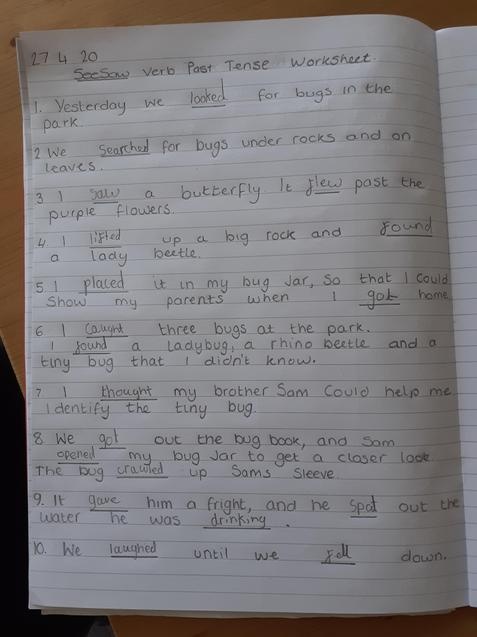 27 4 20
SeeSaw Verb Past Tense Worksheet.
1. Yesterday we looked for bugs in the
park.
2 We searched for bugs under rocks and on
leaves.
3 I saw a butterfly. It flew past the
purple flowers.
4. I lifted up a big rock and found
a lady beetle.
5. I placed it in my bug Jar, So that I Could
Show my parents when I got home
6 I Caught three bugs at the park.
I found a ladybug, a rhino beetle and a
tiny bug that I didn't know.
7 I thought my brother Sam Could help me
Identify the tiny bug.
8. We got out the bug book, and Sam
opened my bug Jar to get a closer look.
The bug crawled up Sams Sleeve.
9. It gave him a fright, and he spat out the
water he was drinking.
10. We laughed until we fell down.